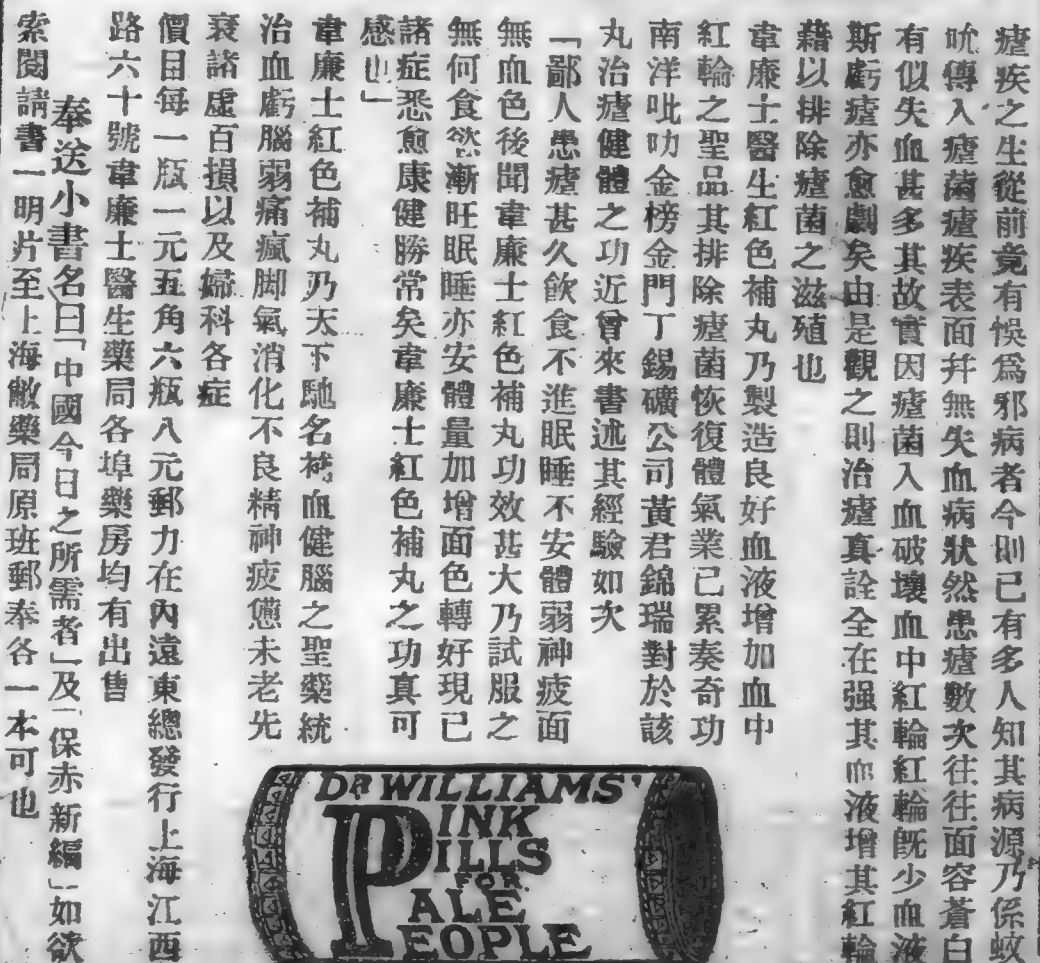 瘧疾之生從前竟有悞爲邪病者今則已有多人知其病源乃係蚊
吮傳入瘧菌瘧疾表面幷無失血病狀然患瘧數次往往面容蒼白
有似失血甚多其故實因瘧菌入血破壞血中紅輪紅輪旣少血液
斯虧瘧亦愈劇矣由是觀之則治瘧真詮全在强其血液增其紅輪
藉以排除瘧菌之滋殖也
韋廉士醫生紅色補丸乃製造良好血液增加血中
紅輪之聖品其排除瘧菌恢復體氣業已累奏奇功
南洋吡叻金榜金門丁錫礦公司黃君錦瑞對於該
丸治瘧健體之功近曾來書述其經驗如次
「鄙人患瘧甚久飲食不進眠睡不安體弱神疲面
無血色後聞韋廉士紅色補丸功效甚大乃試服之
無何食慾漸旺眠睡亦安體量加增面色轉好現已
諸症悉愈康健勝常矣韋廉士紅色補丸之功真可
感也」
韋廉士紅色補丸乃天下馳名補血健腦之聖藥統
治血虧腦弱痛瘋脚氣消化不良精神疲憊未老先
衰諸虛百損以及婦科各症
價目每一瓶一元五角六瓶八元郵力在內遠東總發行上海江西
路六十號韋廉士醫生藥局各埠藥房均有出售
奉送小書名曰「中國今日之所需者」及「保赤新編」如欲
索閱請書一明片至上海敝藥局原班郵奉各一本可也
DR WILLIAMS'
PINK
PILLS
FOR
PALE
PEOPLE